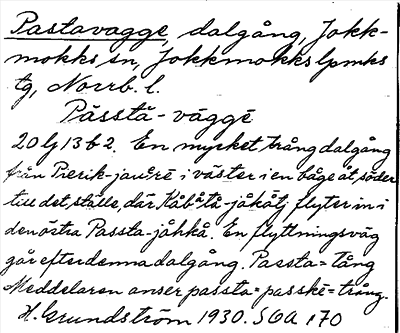 Pastavagge, dalgång, Jokk-
mokks sn, Jokkmokks lpmks
tg, Norrb. l.
Påsstå-väggē
20 lj 13 b 2. En mycket trång dalgång
från Pierik-jaurē i väster i en båge åt söder
till det ställe, där Kåbtå-jåkåtj flyter in i
den östra Passta-jåhkå. En flyttningsväg
går efter denna dalgång. Passta = tång
Meddelaren anser passta = passkē = trång.
H. Grundström 1930. SOA 170